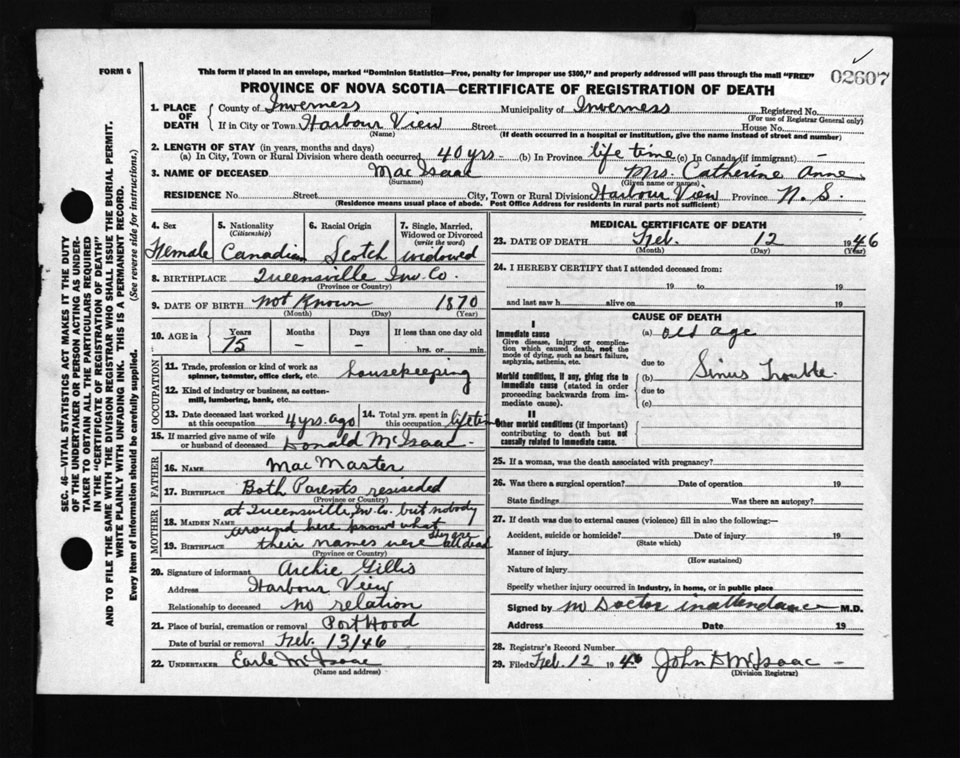 FORM 6
This form if placed in an envelope, marked "Dominion Statistics—Free, penalty for improper use $300," and properly addressed will pass through the mail "FREE"
02607
PROVINCE OF NOVA SCOTIA—CERTIFICATE OF REGISTRATION OF DEATH
1. PLACE OF DEATH
County of Inverness Municipality of Inverness Registered No.
(For use of Registrar General only)
If in City or Town Harbour View Street House No.
(Name) (If death occurred in a hospital or institution, give the name instead of street and number)
2. LENGTH OF STAY (in years, months and days)
(a) In City, Town or Rural Division where death occurred 40 yrs. (b) In Province life time (c) In Canada (if immigrant) —
3. NAME OF DECEASED Mac Isaac Mrs. Catherine Anne
(Surname) (Given name or names)
RESIDENCE No. Street City, Town or Rural Division Harbour View Province N. S.
(Residence means usual place of abode. Post Office Address for residents in rural parts not sufficient)
4. Sex 5. Nationality (Citizenship) 6. Racial Origin 7. Single, Married, Widowed or Divorced (write the word)
Female Canadian Scotch widowed
8. BIRTHPLACE Queensville Inv. Co.
(Province or Country)
9. DATE OF BIRTH not Known 1870
(Month) (Day) (Year)
10. AGE in Years Months Days If less than one day old
75 — — hrs. or min.
OCCUPATION
11. Trade, profession or kind of work as spinner, teamster, office clerk, etc. housekeeping
12. Kind of industry or business, as cotton-mill, lumbering, bank, etc.
13. Date deceased last worked at this occupation 4 yrs. ago 14. Total yrs. spent in this occupation lifetime
15. If married give name of wife or husband of deceased Donald McIsaac
FATHER
16. NAME Mac Master
17. BIRTHPLACE Both Parents resiseded
(Province or Country)
MOTHER
at Queensville, Inv. Co. but nobody
18. MAIDEN NAME around here knows what
19. BIRTHPLACE their names were they are all dead
(Province or Country)
20. Signature of informant Archie Gillis
Address Harbour View
Relationship to deceased no relation
21. Place of burial, cremation or removal Port Hood
Date of burial or removal Feb. 13/46
22. UNDERTAKER Earle McIsaac
(Name and address)
MEDICAL CERTIFICATE OF DEATH
23. DATE OF DEATH Feb. 12 1946
(Month) (Day) (Year)
24. I HEREBY CERTIFY that I attended deceased from:
19 to 19
and last saw h alive on 19
CAUSE OF DEATH
I
Immediate cause (a) old age
Give disease, injury or complication which caused death, not the mode of dying, such as heart failure, asphyxia, asthenia, etc.
due to
Morbid conditions, if any, giving rise to immediate cause (stated in order proceeding backwards from immediate cause).
(b) Sinus Trouble.
due to
(c)
II
Other morbid conditions (if important) contributing to death but not causally related to immediate cause.
25. If a woman, was the death associated with pregnancy?
26. Was there a surgical operation? Date of operation 19
State findings Was there an autopsy?
27. If death was due to external causes (violence) fill in also the following:—
Accident, suicide or homicide? Date of injury 19
(State which)
Manner of injury
(How sustained)
Nature of injury
Specify whether injury occurred in industry, in home, or in public place
Signed by no Doctor in attendance M.D.
Address Date 19
28. Registrar's Record Number
29. Filed Feb. 12 1946 John D McIsaac
(Division Registrar)
SEC. 46—VITAL STATISTICS ACT MAKES IT THE DUTY
OF THE UNDERTAKER OR PERSON ACTING AS UNDER-
TAKER TO OBTAIN ALL THE PARTICULARS REQUIRED
IN THE "CERTIFICATE OF REGISTRATION OF DEATH"
AND TO FILE THE SAME WITH THE DIVISION REGISTRAR WHO SHALL ISSUE THE BURIAL PERMIT.
WRITE PLAINLY WITH UNFADING INK. THIS IS A PERMANENT RECORD.
Every item of information should be carefully supplied. (See reverse side for instructions.)